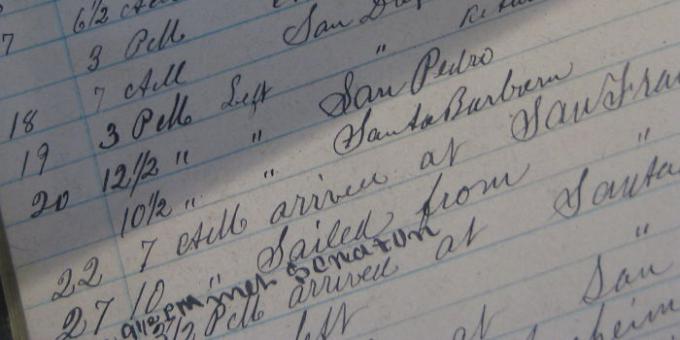 6 1/2 AM
7 3 PM San
7 AM "
18 3 PM Left San Pedro
19 12 1/2 " " Santa Barbara
20 10 1/2 " "
7 AM arrived at San Fran
22 10 " Sailed from "
9 1/2 PM met Senator
27 2 1/2 PM arrived at Santa
left "
at San